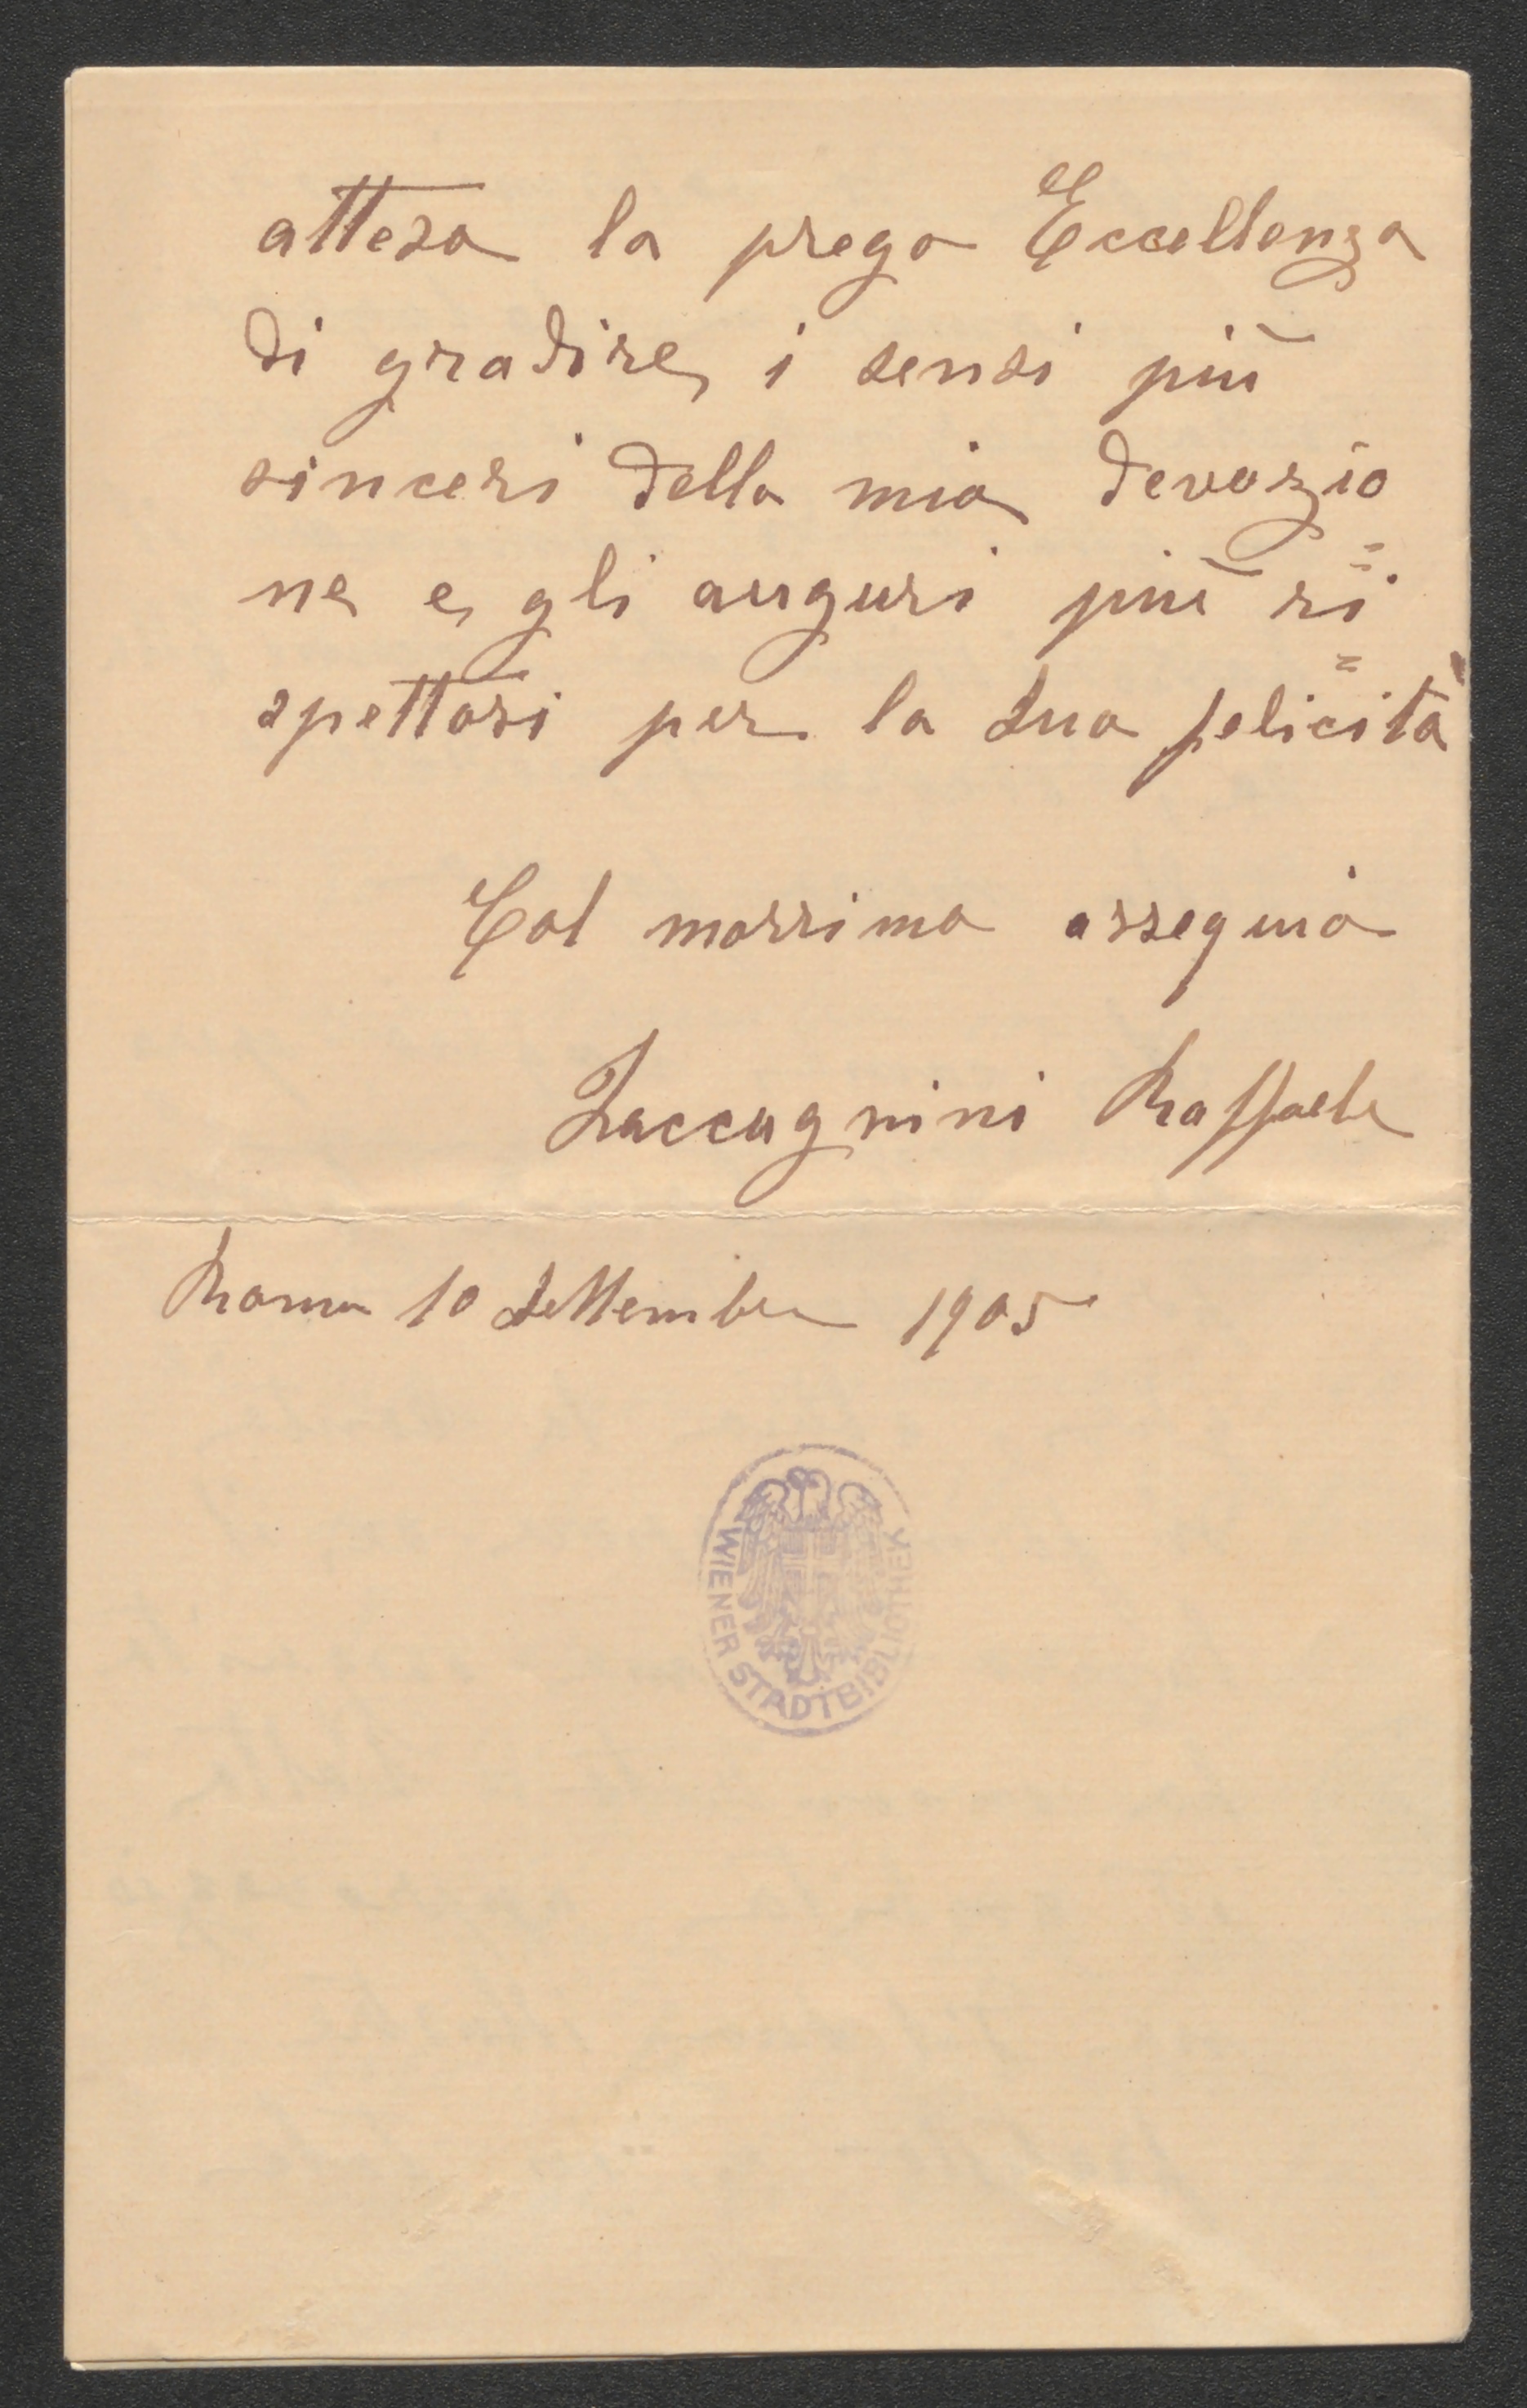 attesa la prego Eccellenza
di gradire i sensi più
sinceri della mia devozio=
ne e gli auguri più ri=
spettosi per la Sua felicità
Col massimo ossequio
Zaccagnini Raffaele
Roma 10 Settembre 1905
WIENER STADTBIBLIOTHEK